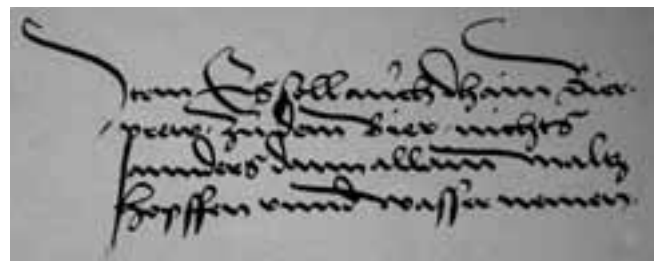 Item Es soll auch khain Bier
prew zu dem Bier nichts
annders dann allain maltz
hopffen vnnd wasser nemen